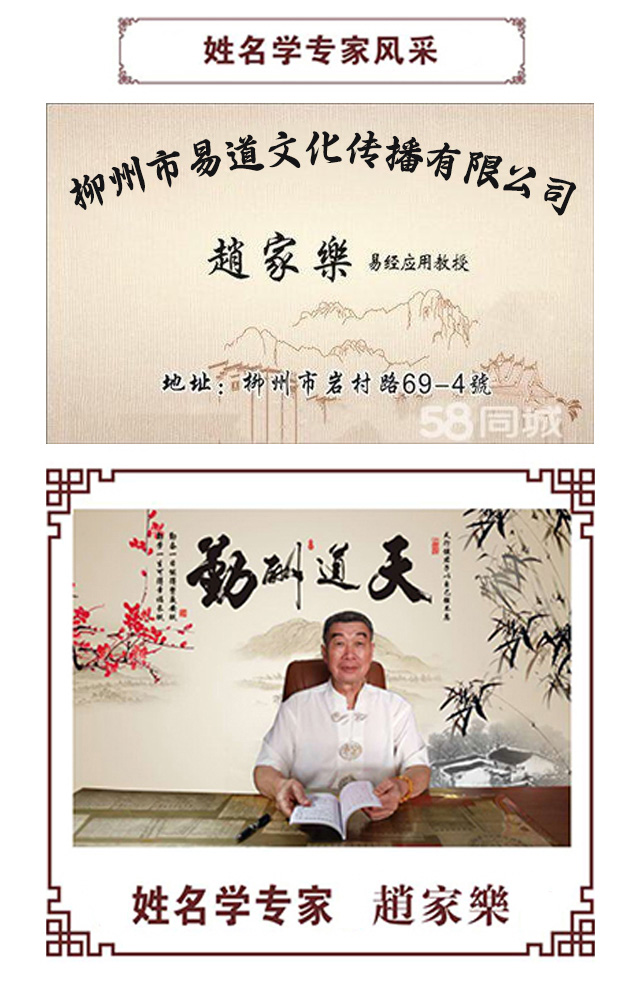 姓名学专家风采
柳州市易道文化传播有限公司
趙家樂 易经应用教授
地址：柳州市岩村路69-4號
58同城
勤酬道天
姓名学专家 趙家樂